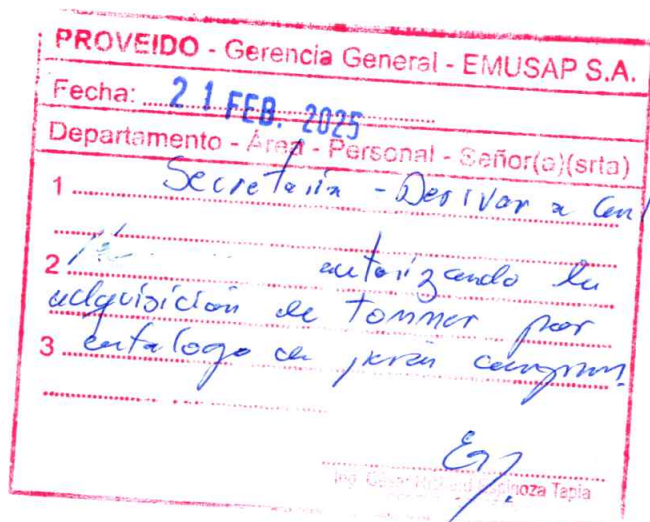 PROVEIDO - Gerencia General - EMUSAP S.A.
Fecha: 21 FEB. 2025
Departamento - Área - Personal - Señor(a)(srta)
1 Secretaría - Derivar a
2 autorizando la
adquisición de Tonner por
3 catalogo
Espinoza Tapia